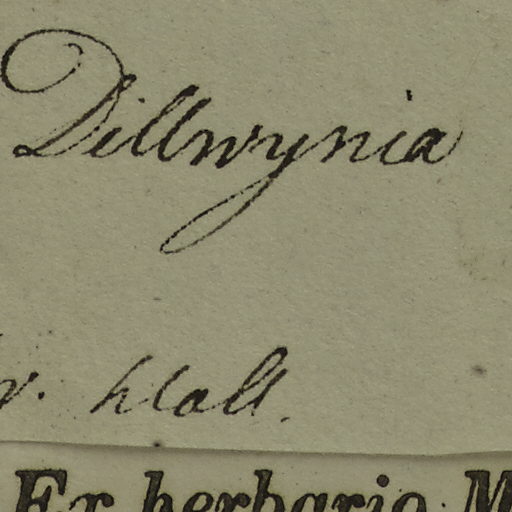 Dillwynia
v. Holl.
Ex herbario M